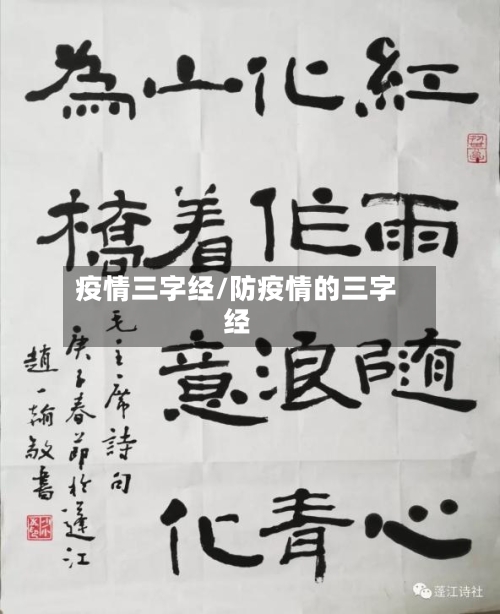 紅雨随心
化作浪青
山着意化
為橋
毛主席詩句
庚子春節於蓬江
趙一翰敬書
疫情三字经/防疫情的三字
经
蓬江诗社